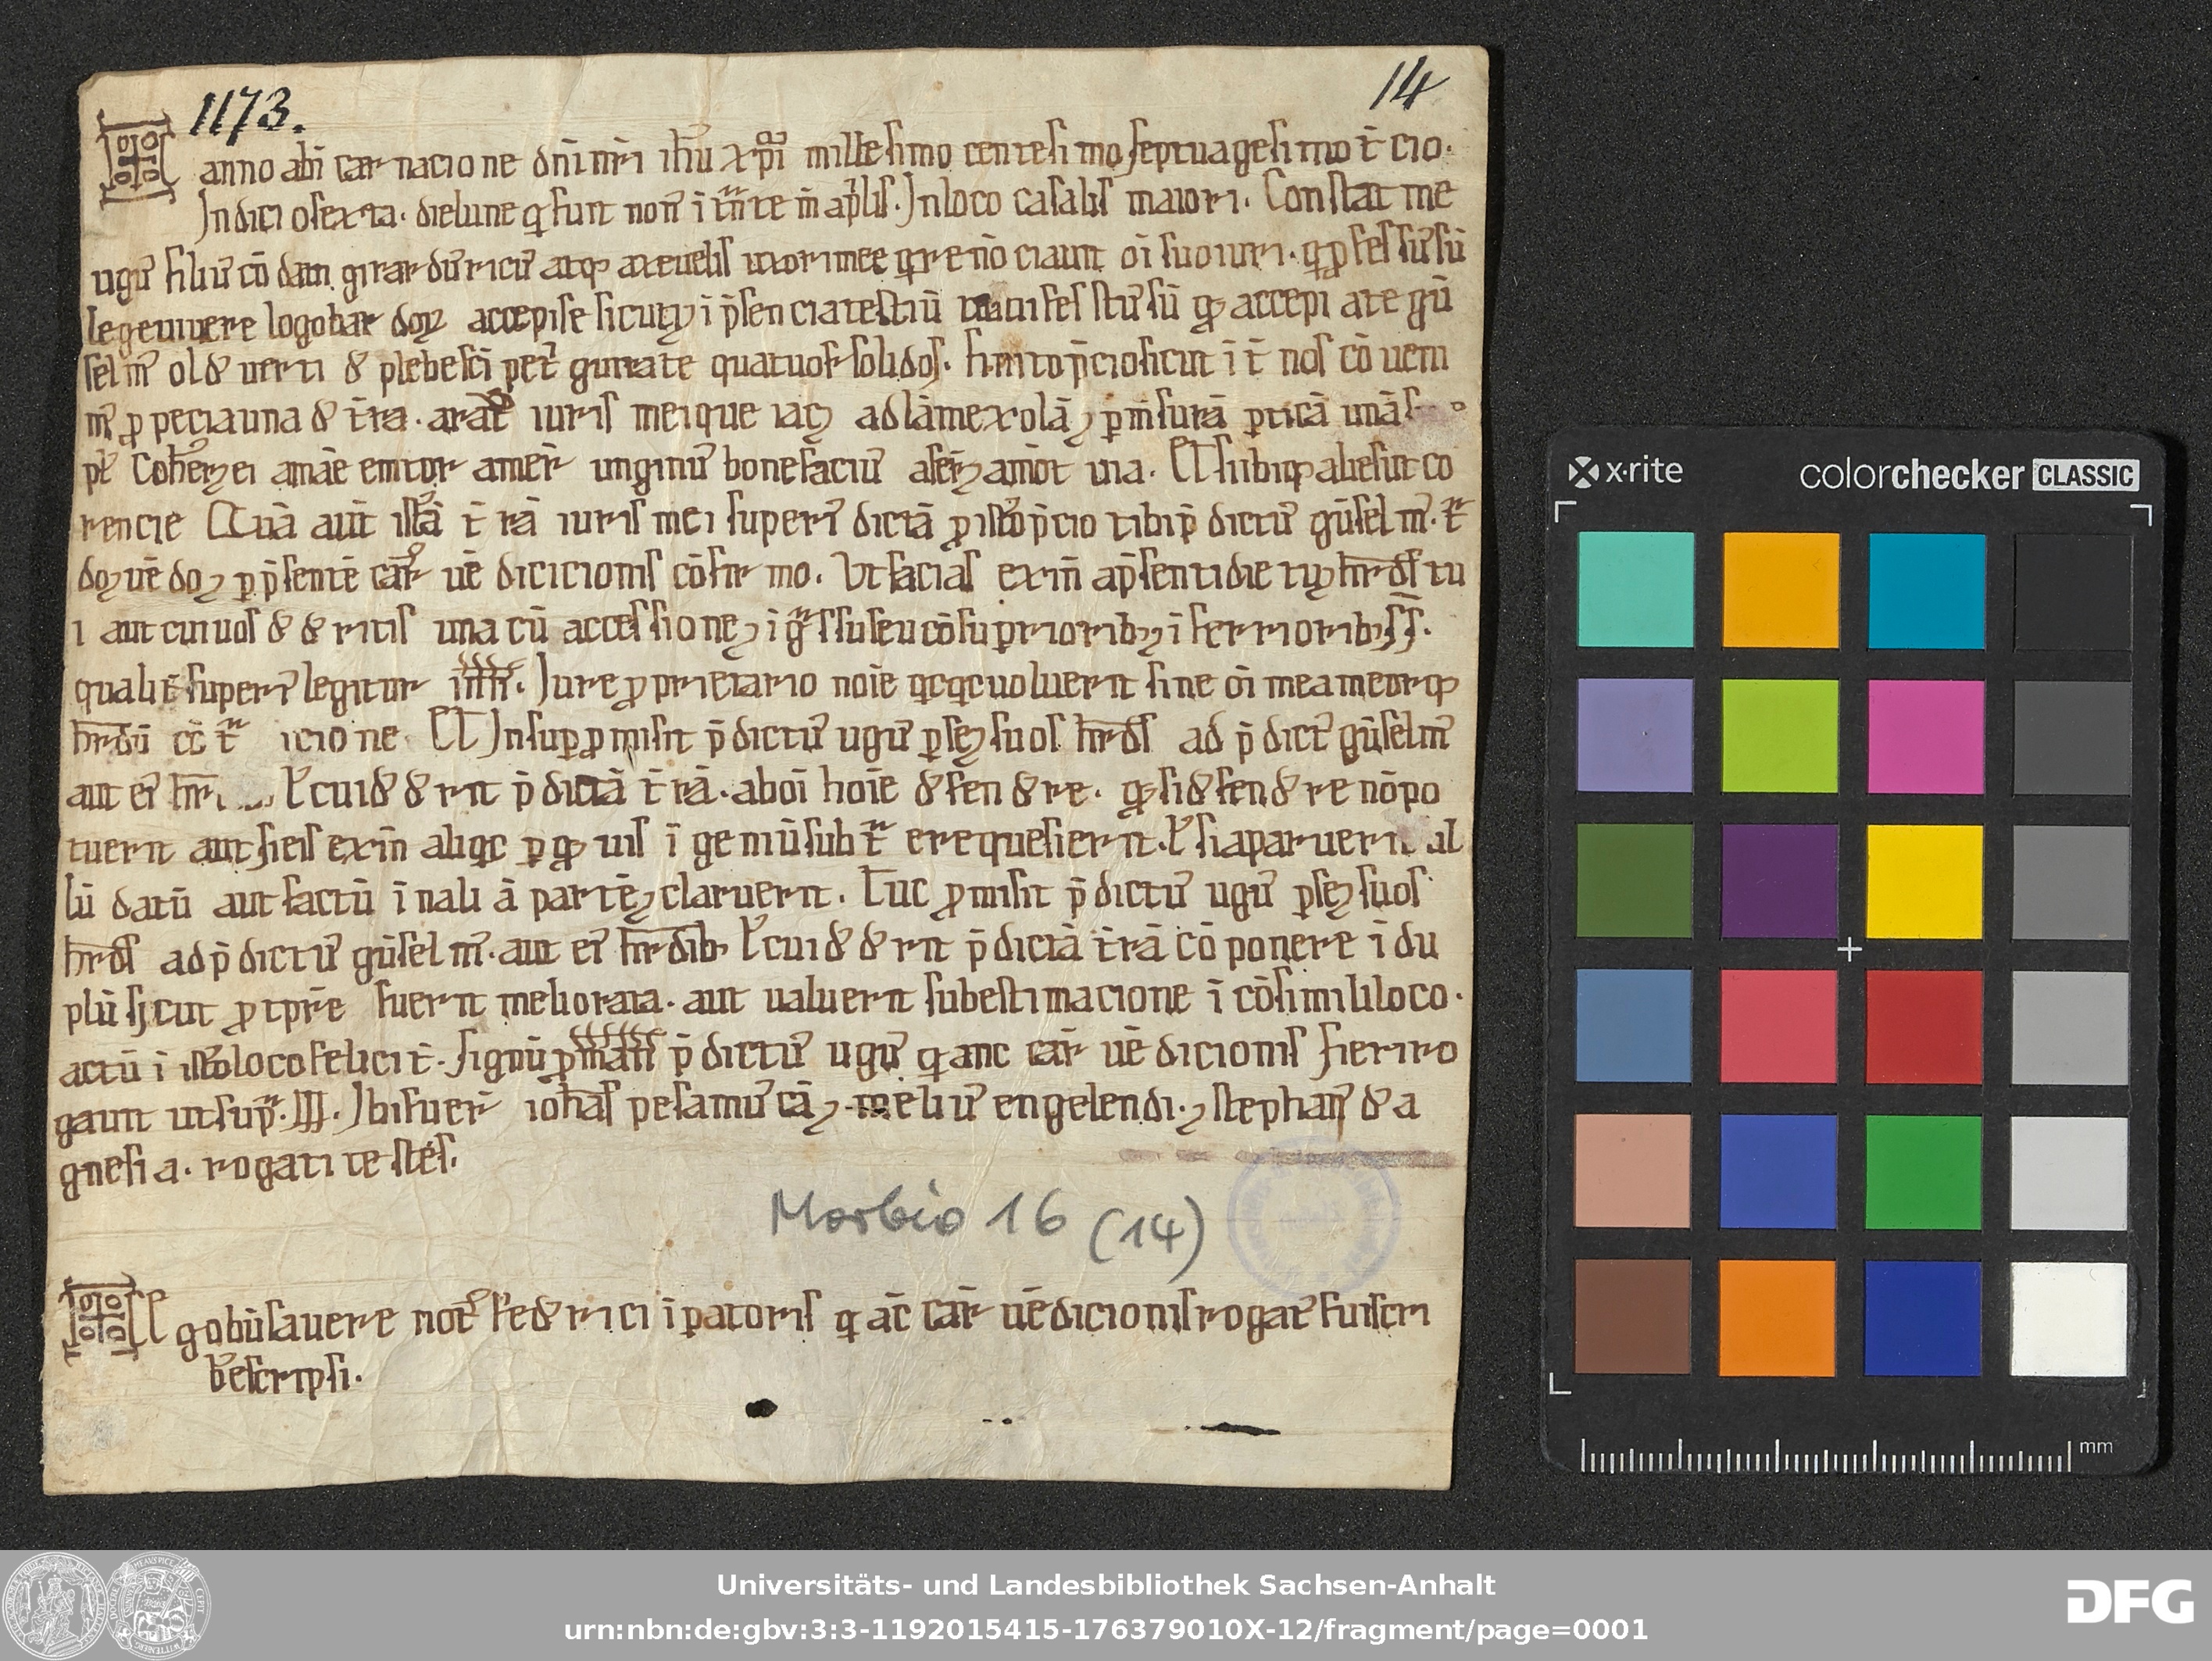 1173.
14
anno abi car nacione dn̄i nr̄i ih̄u xp̄i millesimo centesimo septuagesimo t̄cio.
Indicio sexta. die lune q̄ funt non̄ i m̄ ap̄lis. In loco casalis maiori. Constat me
ugū filiū cō dam girardū ricū atqꝫ uxori mee q̄ re nō ciaunt oī suo iuri. sū
lege uiuere logobar doꝝ accepise sicuti i p̄sencia testiū manifestū sū qꝫ accepi a te gū
selm̄ ol& uerti & plebe sc̄i pet̄ gurrate quatuor solidos. finito p̄cio sicut īt̄ nos cō ueni
m̄ ꝓ pecia una & t̄ra. iuris mei que iac& ad lāme xolā ꝑ m̄surā ꝑticā unā
Coher& ei a māe emtor a mer̄ unginū bonefaciū a ser& a mōt uia. Et si ibiqꝫ alie sūt co
rencie Quā aūt istā t̄rā iuris mei superī dictā ꝓ isto p̄cio tibi p̄dictū gūselm̄.
do& uēdo& ꝑ p̄sentē car̄ uēdicionis cōfirmo. Ut facias exin̄ a p̄senti die tu & hr̄ds tu
i aut cui uos d&d&ritis una cū accessione & īgssu seu cō supͥoribꝫ & īferrioribꝫ
qualit̄ superī legitur Iure ꝓprietario noīe qc qc uoluerit sine oī mea meorqꝫ
hr̄dū cōt̄ icione. Et In sup ꝓmisit p̄dictū ugū ꝑ se & suos hr̄ds ad p̄dict̄ gūselm̄
aut eī hr̄ ł cui d&d&rit p̄dictā t̄rā. ab oī hoīe d&fend&re. qꝫ si d&fend&re nō po
tuerit aut si eis exin̄ aliqc ꝑ qꝫ uis īgeniū subt̄ ere quesierit. ł si aparuerit al
lū datū aut factū ī nali ā partē & claruerit. Tuc ꝓmisit p̄dictū ugū ꝑ se & suos
hr̄ds ad p̄dictū gūselm̄. aut eī hr̄dib ł cui d&d&rit p̄dictā t̄rā cōponere ī du
plū sicut ꝓ tp̄re fuerit meliorata. aut ualuerit sub estimacione ī cōsimili loco.
actū ī isto loco felicit̄. Signū ꝓ man̄ p̄dictū ugū q anc car̄ uēdicionis fieri ro
gaunt ut sup̄. III. Ibi fuer̄ ioh̄as pesamū cā & meliū engelendi. & stephan̄ d& a
gnesia. rogati testes.
Morbio 16 (14)
Ego būsauere not̄ fed&rici īpatoris q āc car̄ uēdicionis rogat̄ fui scri
bere scripsi.
x-rite
colorchecker CLASSIC
mm
Universitäts- und Landesbibliothek Sachsen-Anhalt
urn:nbn:de:gbv:3:3-1192015415-176379010X-12/fragment/page=0001
DFG